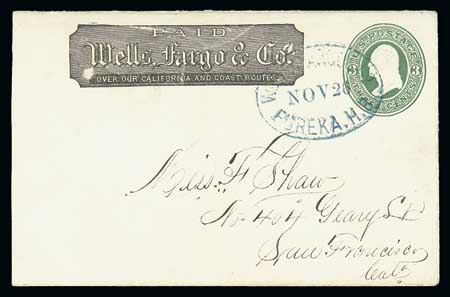 PAID
Wells, Fargo & Co.
OVER OUR CALIFORNIA AND COAST ROUTES.
U.S. POSTAGE
3 3
CENTS
NOV 20
EUREKA. H. B.
Miss. F Shaw
No. 404 Geary St
San Francisco
Cala